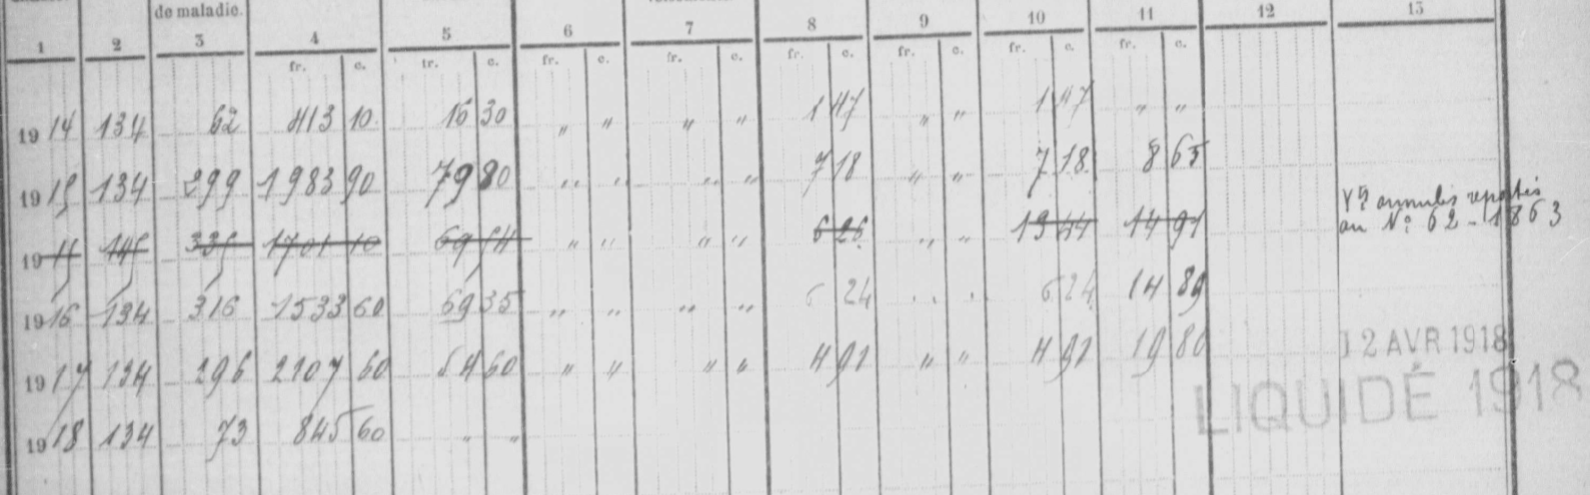 de maladie.
1 2 3 4 5 6 7 8 9 10 11 12 13
fr. c. fr. c. fr. c. fr. c. fr. c. fr. c. fr. c.
1914 134 62 413 10 16 30 " " " " 1 47 " " 1 47 " "
1915 134 299 1983 90 79 80 " " " " 7 18 " " 7 18 8 65
1915 145 335 1701 10 69 54 " " " " 6 26 " " 13 44 14 91 Vts annulés reportés
au N° 62-1863
1916 134 316 1533 60 69 35 " " " " 6 24 " " 6 24 14 89
1917 134 296 2107 60 54 60 " " " " 4 91 " " 4 91 19 80 12 AVR 1918
LIQUIDÉ 1918
1918 134 73 845 60 " "